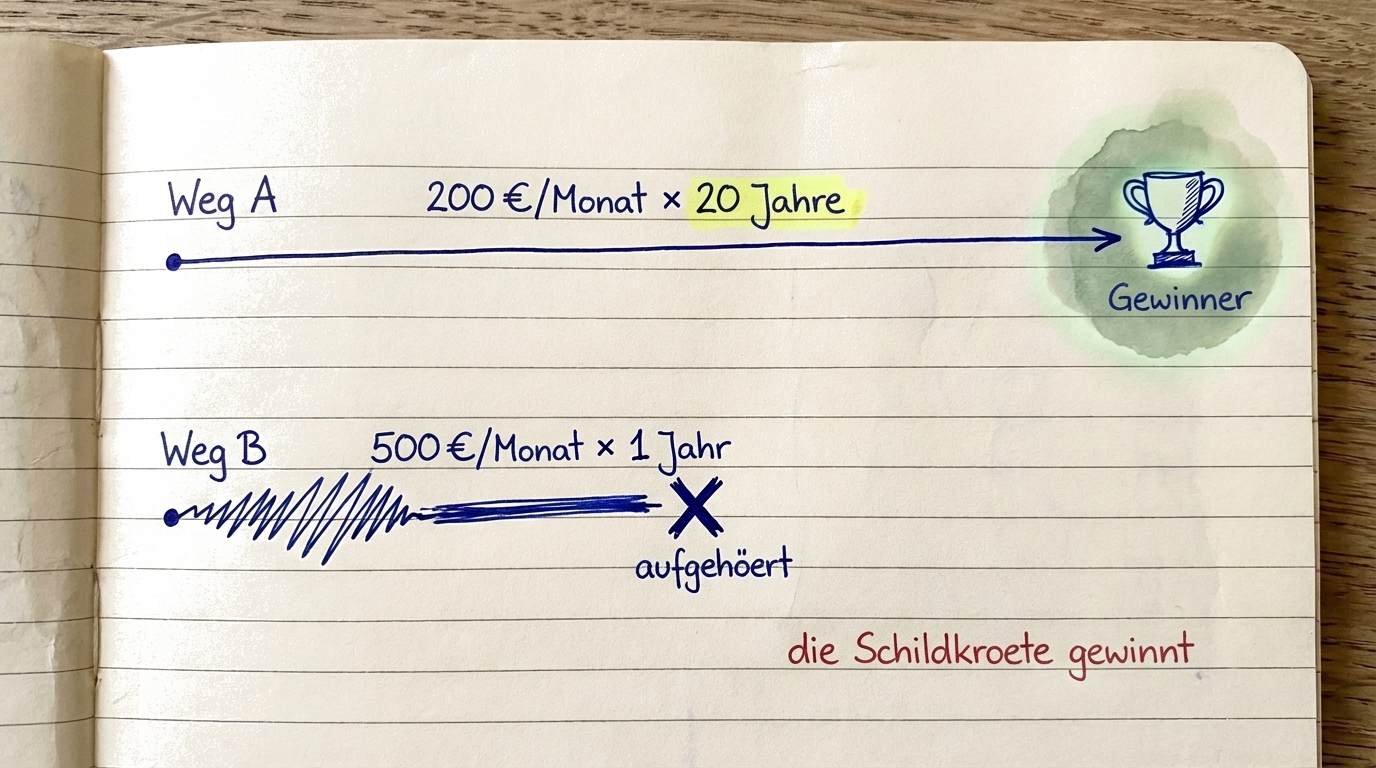 Weg A
200 €/Monat × 20 Jahre
Gewinner
Weg B
500 €/Monat × 1 Jahr
aufgehöert
die Schildkroete gewinnt